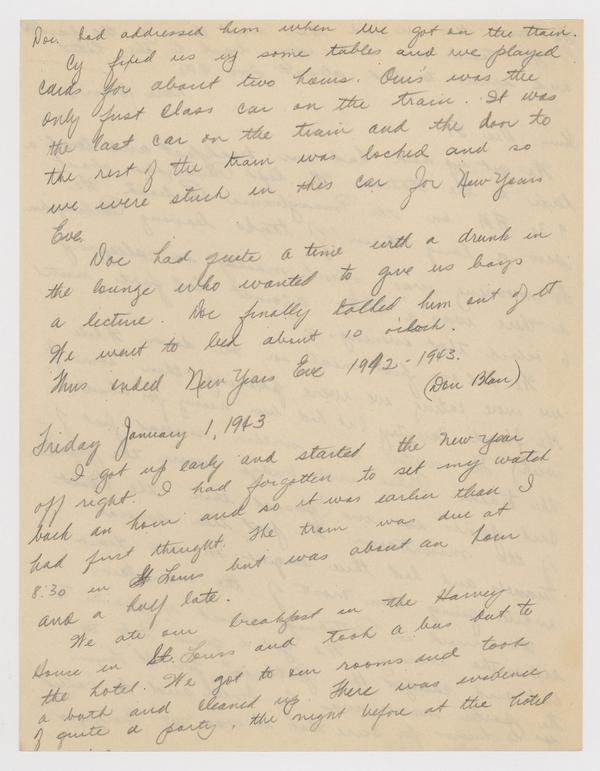 Doc. had addressed him when we got on the train.
Cy fixed us up some tables and we played
cards for about two hours. Ours was the
only first class car on the train. It was
the last car on the train and the door to
the rest of the train was locked and so
we were stuck in this car for New Years
Eve.
Doc had quite a time with a drunk in
the lounge who wanted to give us boys
a lecture. Doc finally talked him out of it
We went to bed about 10 o'clock.
Thus ended New Years Eve 1942-1943.
(Don Blan)
Friday January 1, 1943
I got up early and started the new year
off right. I had forgotten to set my watch
back an hour and so it was earlier than I
had first thought. The train was due at
8:30 in St Louis but was about an hour
and a half late.
We ate our breakfast in the Harvey
House in St. Louis and took a bus out to
the hotel. We got to our rooms and took
a bath and cleaned up. There was evidence
of quite a party, the night before at the hotel